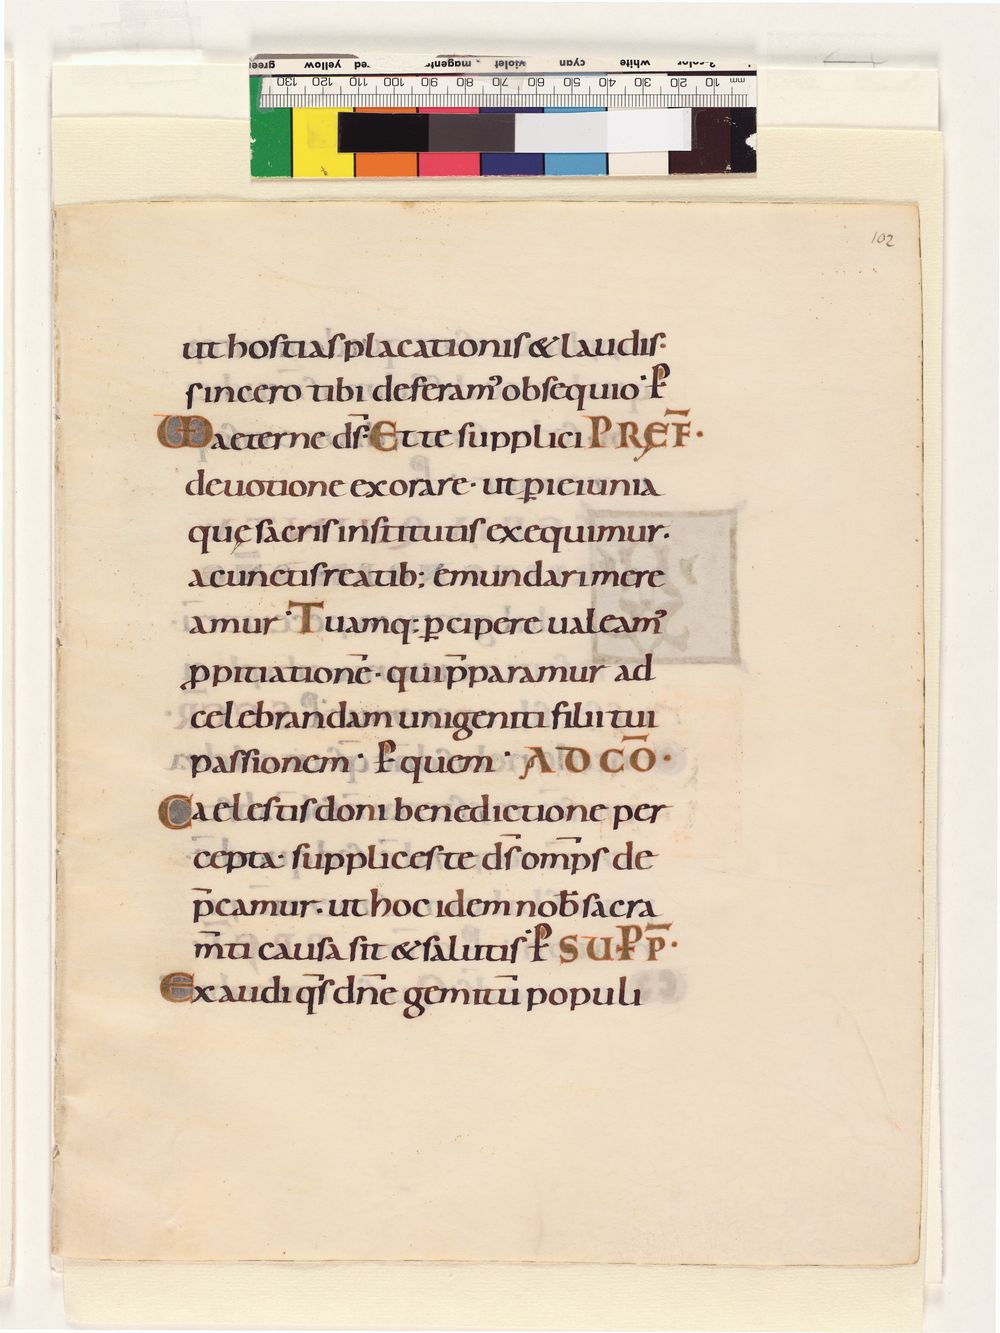 green yellow red magenta violet cyan white 3-color
130 120 110 100 90 80 70 60 50 40 30 20 10 mm
102
ut hostias placationis & laudis:
sincero tibi deferam' obsequio· P̄
VD aeterne d̄s· Et te supplici PREF̄·
deuotione exorare· ut ꝑ ieiunia
quę sacris institutis exequimur·
a cunctis reatib; emundari mere
amur· Tuamq; ꝑcipere ualeam'
ꝓpitiationē· qui p̄paramur ad
celebrandam unigeniti filii tui
passionem· P̄ quem· AD CŌ·
Caelestis doni benedictione per
cepta· supplices te d̄s om̄ps de
p̄camur· ut hoc idem nob̄ sacra
m̄ti causa sit & salutis· P̄ SUPP̄·
Exaudi q̄s dn̄e gemitū populi